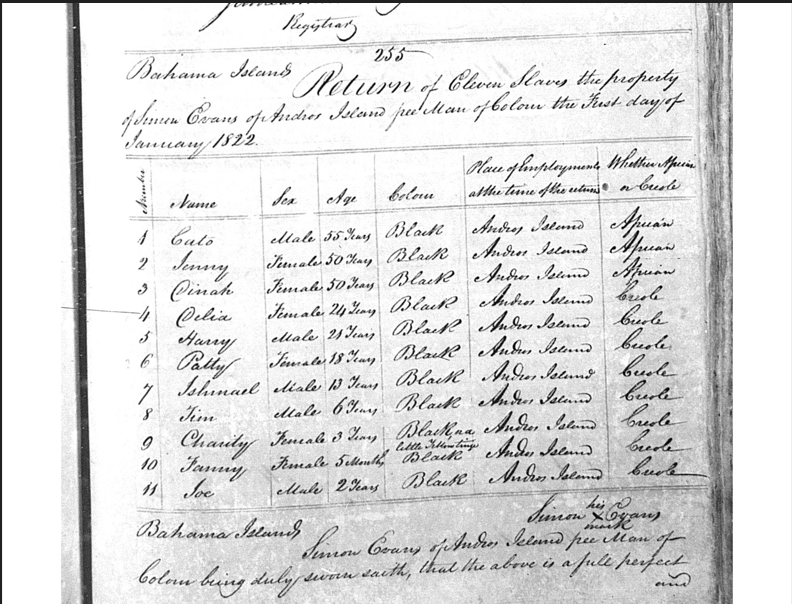 Registrar
255
Bahama Islands
Return of Eleven Slaves the property
of Simon Evans of Andros Island free Man of Colour the First day of
January 1822.
Number Name Sex Age Colour Place of Employment at the time of the return Whether African or Creole
1 Cato Male 55 Years Black Andros Island African
2 Jenny Female 50 Years Black Andros Island African
3 Dinah Female 50 Years Black Andros Island African
4 Delia Female 24 Years Black Andros Island Creole
5 Harry Male 21 Years Black Andros Island Creole
6 Patty Female 18 Years Black Andros Island Creole
7 Ishmael Male 13 Years Black Andros Island Creole
8 Tim Male 6 Years Black Andros Island Creole
9 Charity Female 3 Years Black, na little Yellow tinge Andros Island Creole
10 Fanny Female 5 Months Black Andros Island Creole
11 Joe Male 2 Years Black Andros Island Creole
his
Simon X Evans
mark
Bahama Islands
Simon Evans of Andros Island free Man of
Colour being duly sworn saith, that the above is a full perfect
and